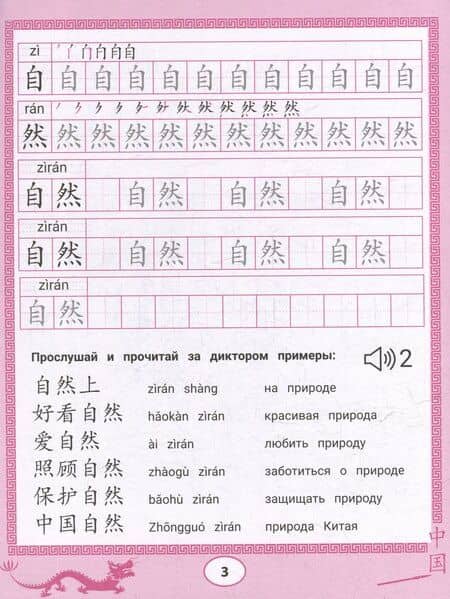 zì
自 自 自 自 自 自 自 自 自 自 自 自
rán
然 然 然 然 然 然 然 然 然 然 然 然
zìrán
自然 自然 自然 自然
zìrán
自然 自然 自然 自然
zìrán
自然
Прослушай и прочитай за диктором примеры: 2
自然上 zìrán shàng на природе
好看自然 hǎokàn zìrán красивая природа
爱自然 ài zìrán любить природу
照顾自然 zhàogù zìrán заботиться о природе
保护自然 bǎohù zìrán защищать природу
中国自然 Zhōngguó zìrán природа Китая
中国
3